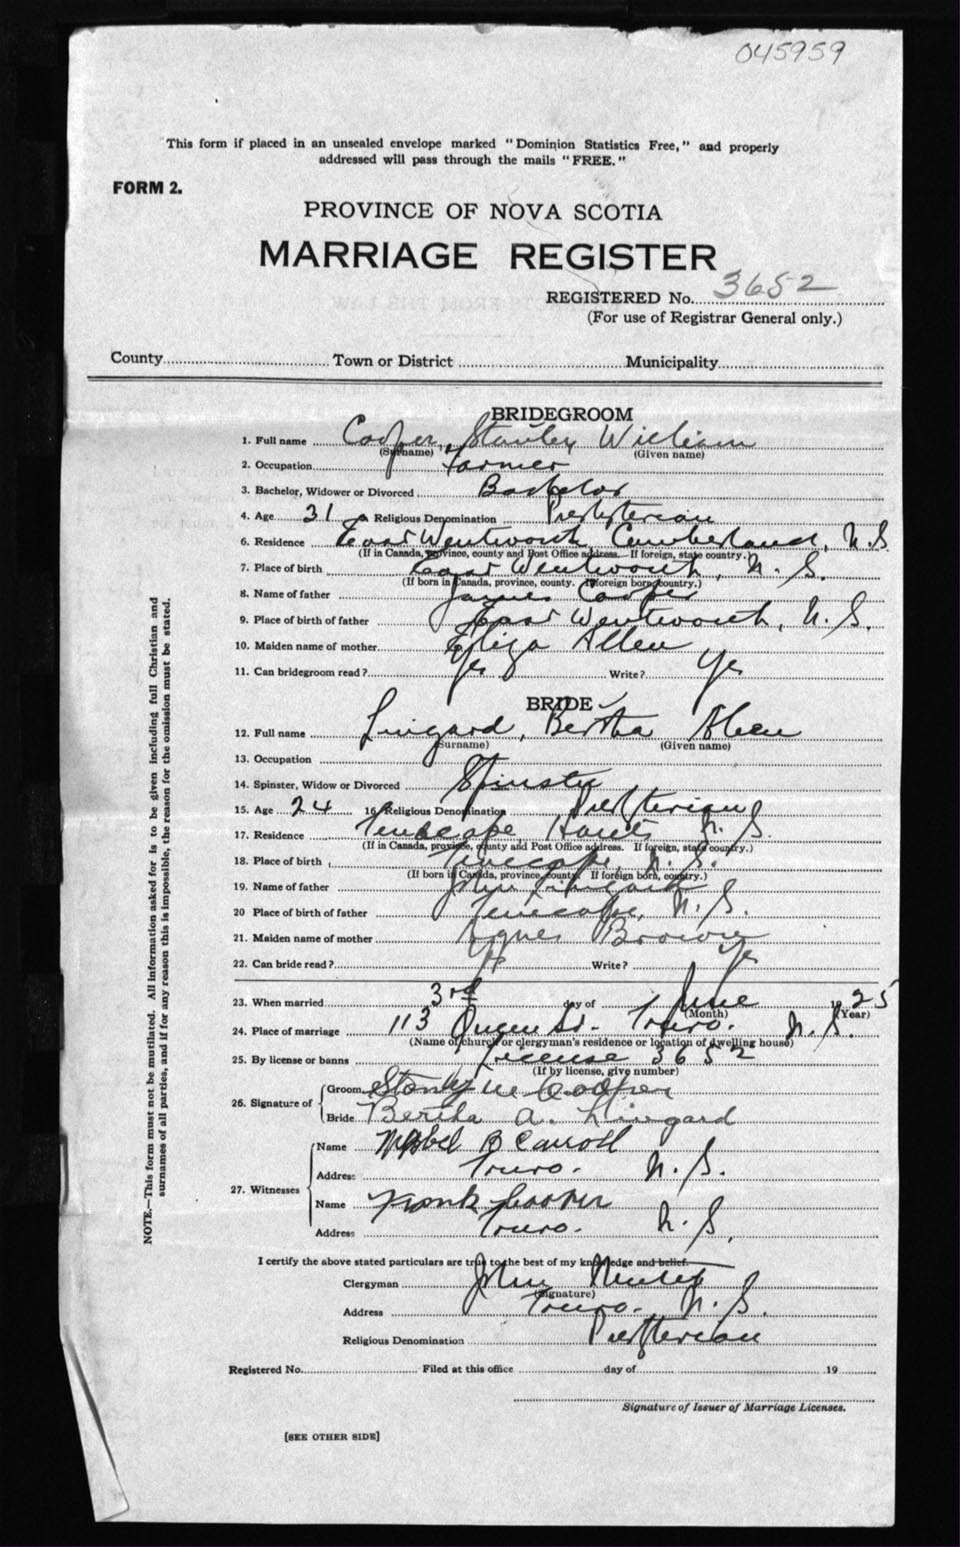 045959
This form if placed in an unsealed envelope marked "Dominion Statistics Free," and properly
addressed will pass through the mails "FREE."
FORM 2.
PROVINCE OF NOVA SCOTIA
MARRIAGE REGISTER
REGISTERED No. 3652
(For use of Registrar General only.)
County Town or District Municipality
BRIDEGROOM
1. Full name Cooper, Stanley William
(Surname) (Given name)
2. Occupation Farmer
3. Bachelor, Widower or Divorced Bachelor
4. Age 31 Religious Denomination Presbyterian
6. Residence East Wentworth Cumberland, N.S.
(If in Canada, province, county and Post Office address. If foreign, state country.)
7. Place of birth East Wentworth, N. S.
(If born in Canada, province, county. If foreign born, country.)
8. Name of father James Cooper
9. Place of birth of father East Wentworth, N. S.
10. Maiden name of mother Eliza Allen
11. Can bridegroom read? Yes Write? Yes
BRIDE
12. Full name Lingard, Bertha
(Surname) (Given name)
13. Occupation
14. Spinster, Widow or Divorced Spinster
15. Age 24 16 Religious Denomination Presbyterian
17. Residence Tenecape Hants N. S.
(If in Canada, province, county and Post Office address. If foreign, state country.)
18. Place of birth Tenecape, N. S.
(If born in Canada, province, county. If foreign born, country.)
19. Name of father John
20 Place of birth of father Tenecape, N. S.
21. Maiden name of mother Agnes Brown
22. Can bride read? Yes Write? Yes
23. When married 3rd day of June 1925
(Month) (Year)
24. Place of marriage 113 Queen St. Truro. N. S.
(Name of church or clergyman's residence or location of dwelling house)
25. By license or banns License 3652
(If by license, give number)
26. Signature of Groom Stanley W Cooper
Bride Bertha A. Lingard
27. Witnesses Name Mabel B Carroll
Address Truro. N. S.
Name Frank Cooper
Address Truro. N. S.
I certify the above stated particulars are true to the best of my knowledge and belief.
Clergyman John
(Signature)
Address Truro. N. S.
Religious Denomination Presbyterian
Registered No. Filed at this office day of 19
Signature of Issuer of Marriage Licenses.
[SEE OTHER SIDE]
NOTE.—This form must not be mutilated. All information asked for is to be given including full Christian and
surnames of all parties, and if for any reason this is impossible, the reason for the omission must be stated.